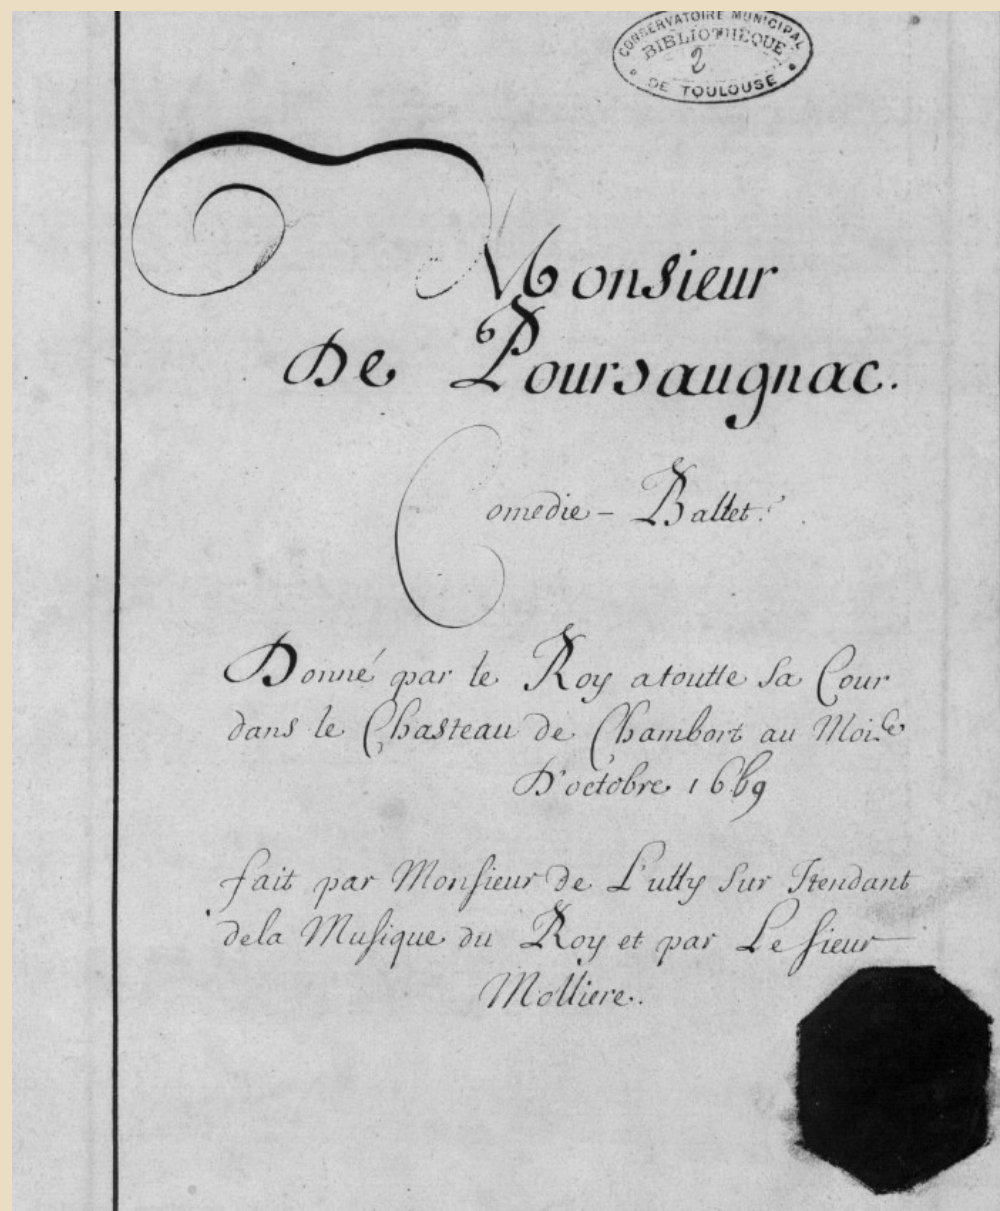 CONSERVATOIRE MUNICIPAL
BIBLIOTHÈQUE
2
DE TOULOUSE
Monsieur
De Poursaugnac.
Comedie - Ballet.
Donné par le Roy atoutte sa Cour
dans le Chasteau de Chambort au Mois
D'octobre 1669
fait par Monsieur de Lully Sur Itendant
dela Musique du Roy et par Le sieur
Molliere.